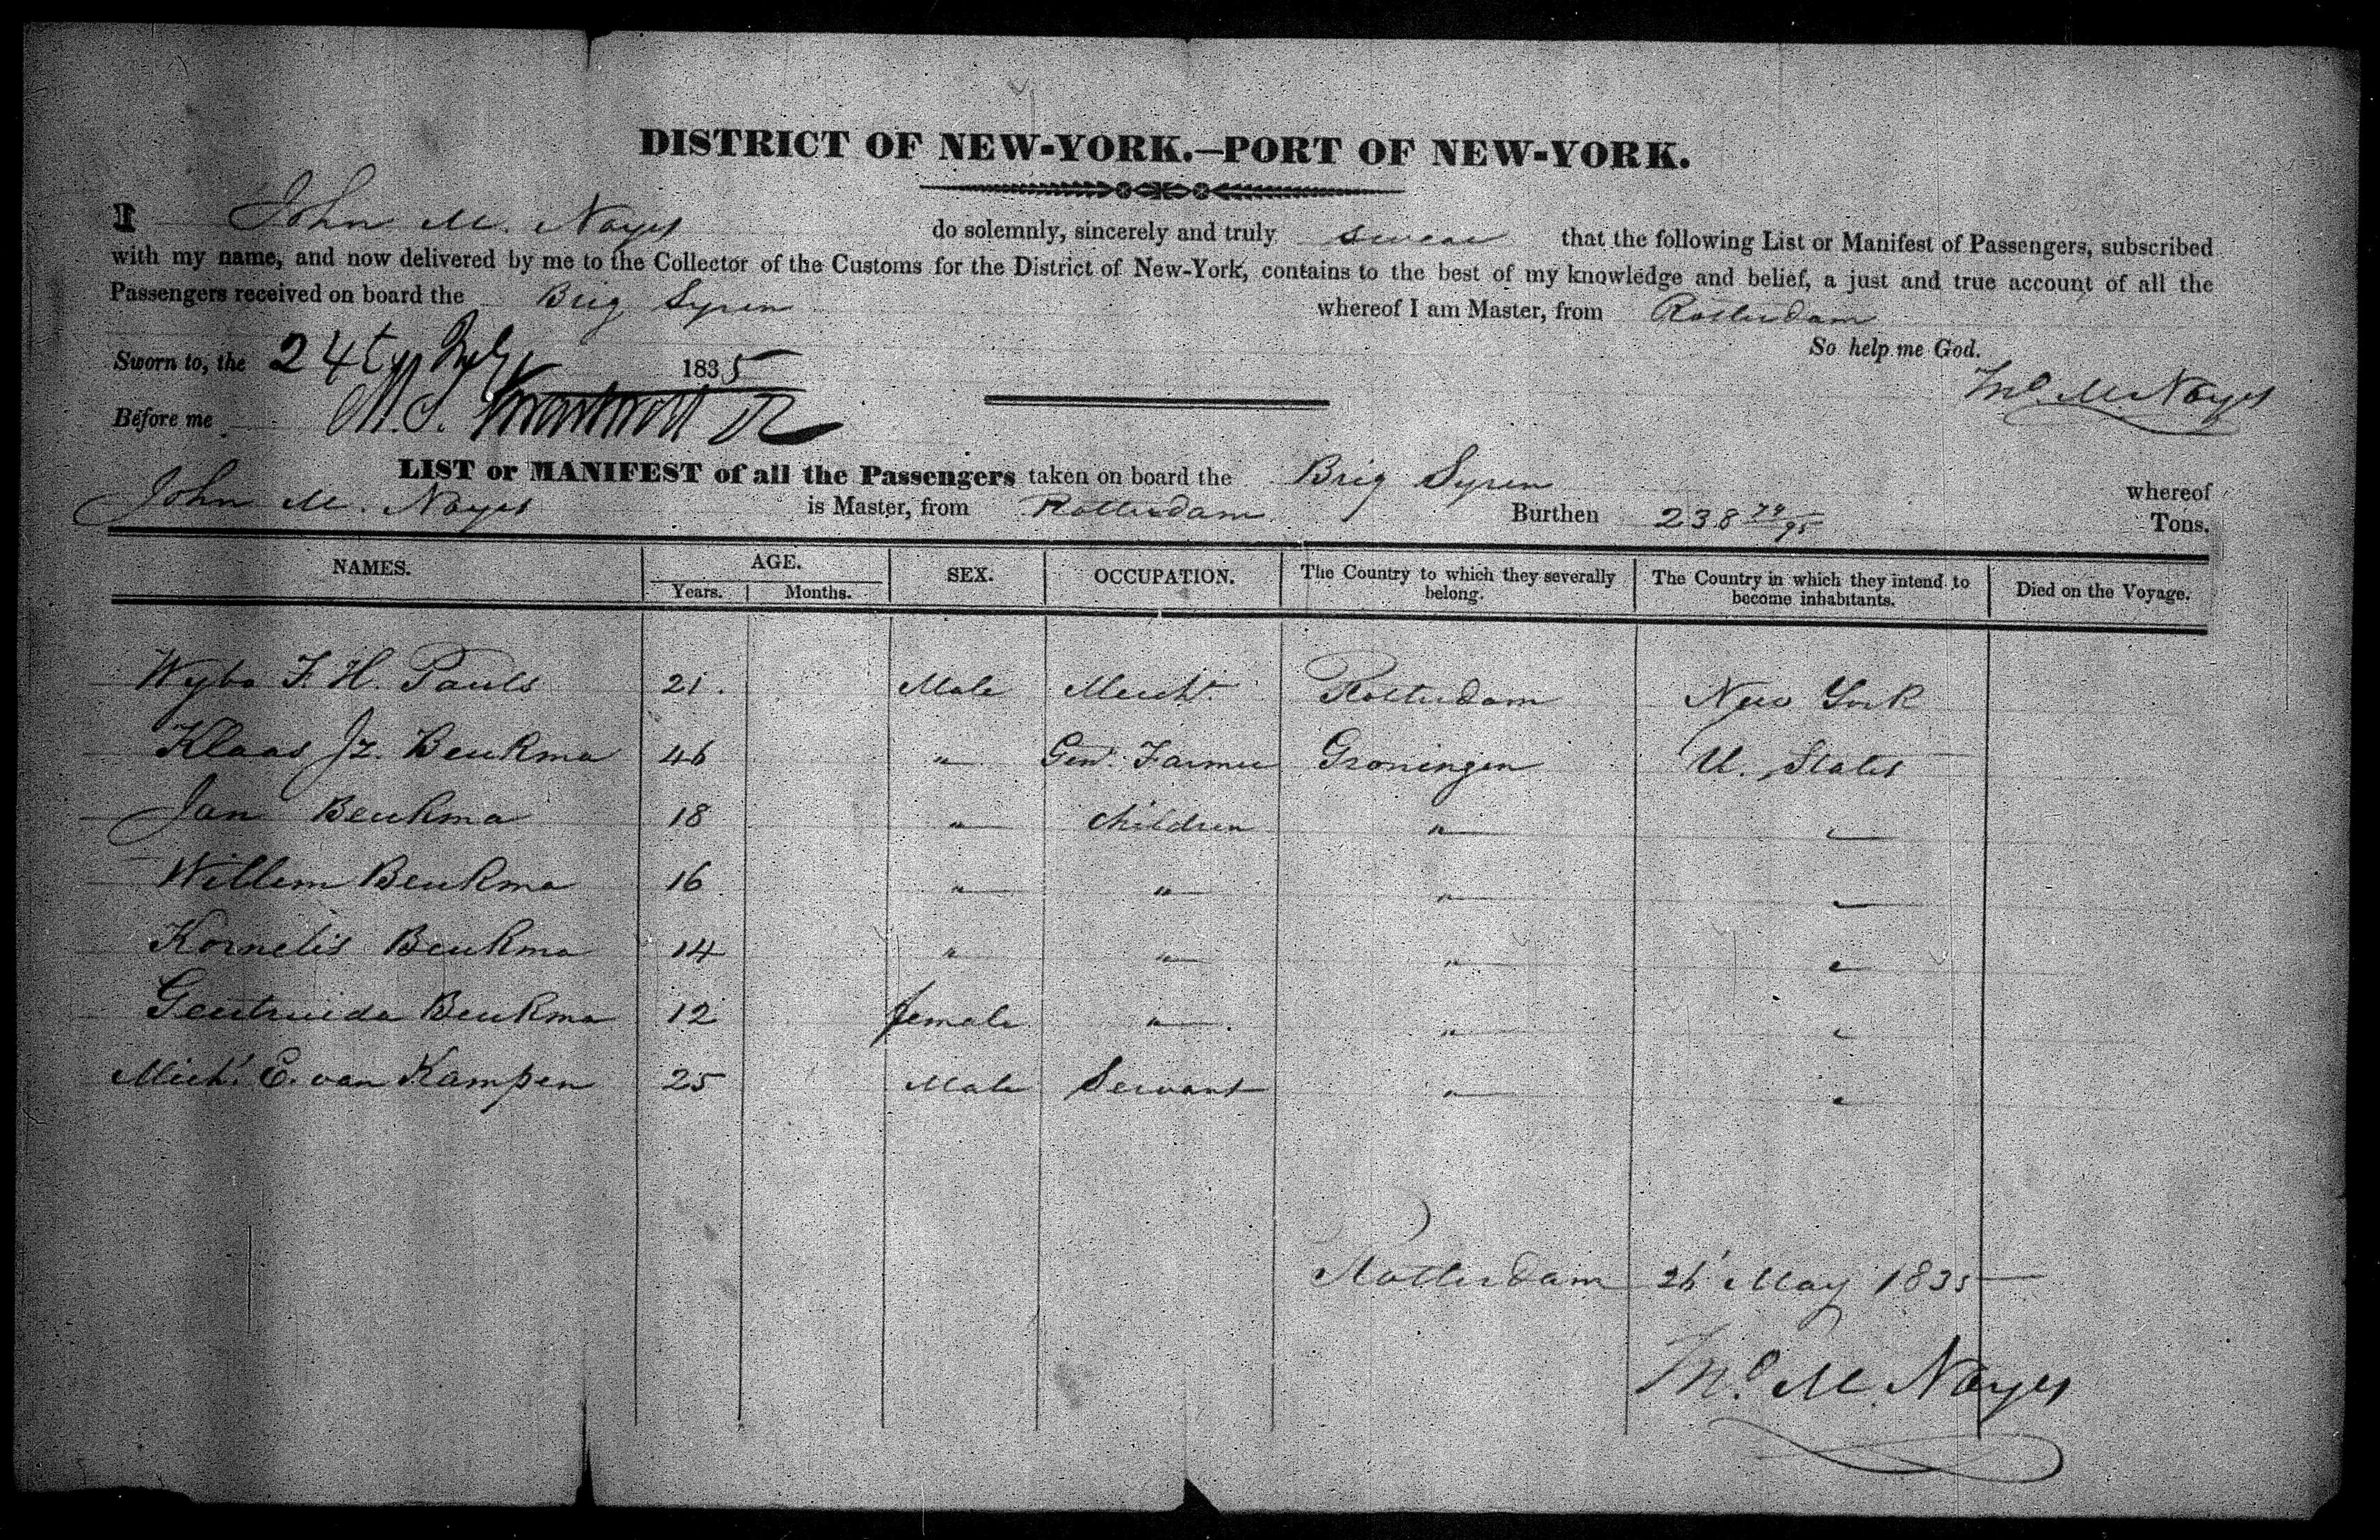 DISTRICT OF NEW-YORK.—PORT OF NEW-YORK.
I John M. Noyes do solemnly, sincerely and truly swear that the following List or Manifest of Passengers, subscribed
with my name, and now delivered by me to the Collector of the Customs for the District of New-York, contains to the best of my knowledge and belief, a just and true account of all the
Passengers received on board the Brig Syren whereof I am Master, from Rotterdam
So help me God.
Sworn to, the 24th July 1835
Jno. M. Noyes
Before me M. S.
LIST or MANIFEST of all the Passengers taken on board the Brig Syren whereof
John M. Noyes is Master, from Rotterdam Burthen 238 74/95 Tons.
NAMES. AGE. SEX. OCCUPATION. The Country to which they severally belong. The Country in which they intend to become inhabitants. Died on the Voyage.
Years. Months.
Wybo F. H. Pauls 21. Male Mercht Rotterdam New York
Klaas Jz. Beukma 46 " Gen. Farmer Groningen U. States
Jan Beukma 18 " children " "
Willem Beukma 16 " " " "
Kornelis Beukma 14 " " " "
Geertruida Beukma 12 female " " "
Mich. E. van Kampen 25 Male Servant " "
Rotterdam 26 May 1835
Jno. M. Noyes